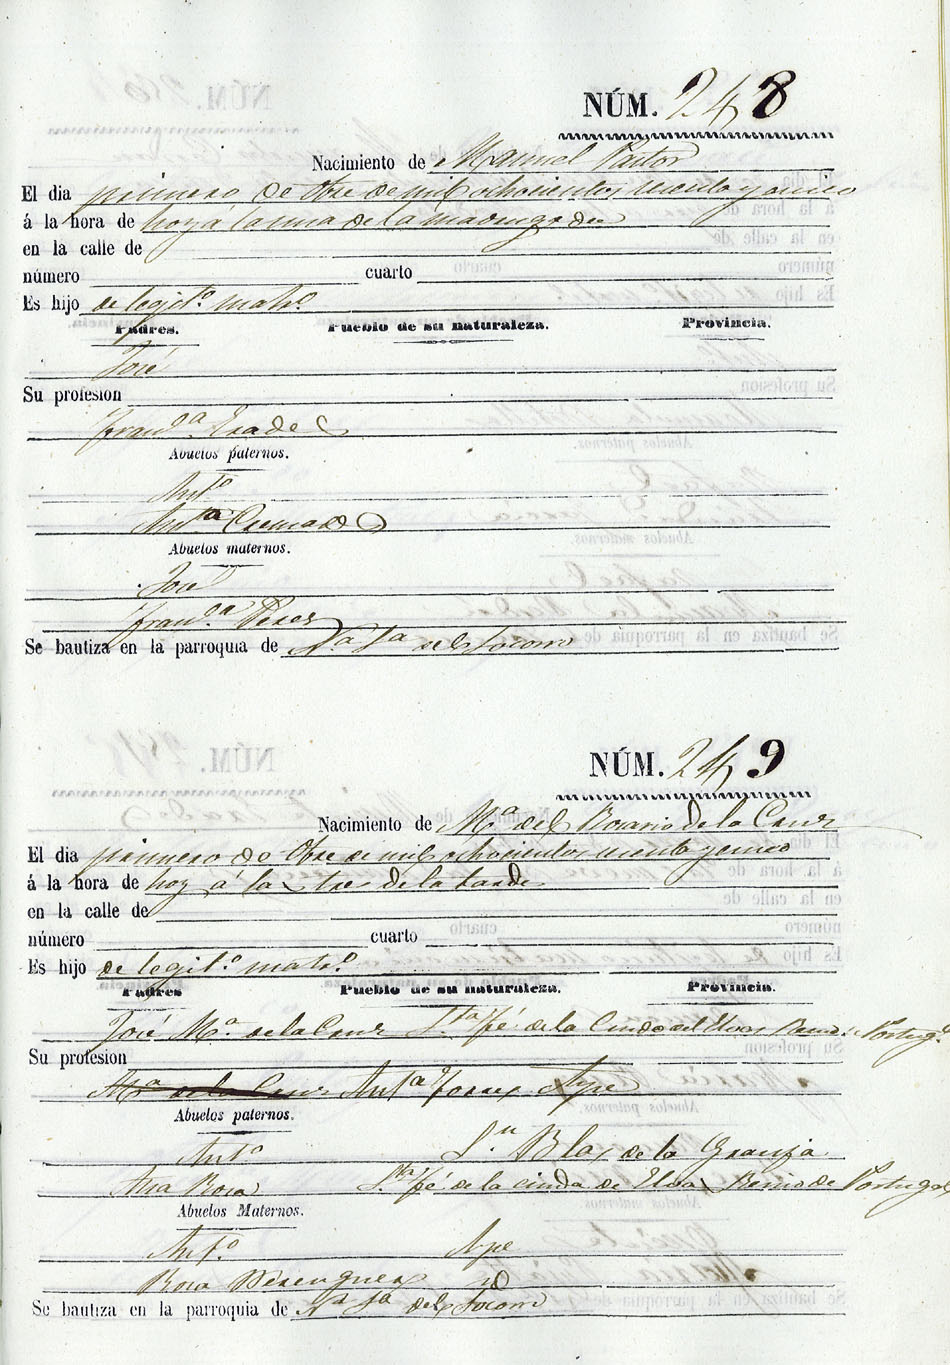 NÚM. 248
Nacimiento de Manuel Pastor
El dia primero de Obre de mil ochocientos cuenta y cinco
á la hora de hoy á la una de la madrugada
en la calle de
número cuarto
Es hijo de legit.º matr.º
Padres. Pueblo de su naturaleza. Provincia.
José
Su profesion
Fran.ca
Abuelos paternos.
Ant.º
Ant.ª
Abuelos maternos.
José
Fran.ca Perez
Se bautiza en la parroquia de N.ª S.ª del Socorro
NÚM. 249
Nacimiento de M.ª del Rosario de la Cruz
El dia primero de Obre de mil ochocientos cuenta y cinco
á la hora de hoy á las tres de la tarde
en la calle de
número cuarto
Es hijo de legit.º matr.º
Padres Pueblo de su naturaleza. Provincia.
José M.ª de la Cruz S.ta fé de la Ciudad de Elvas Reino de Portug.l
Su profesion
M.ª de la Cruz Ant.ª Torres Aspe
Abuelos paternos.
Ant.º S.n Blas de la Granja
Ana Rosa S.ta fé de la ciuda de Elvas Reino de Portugal
Abuelos Maternos.
Ant.º Aspe
Rosa Berenguer id
Se bautiza en la parroquia de N.ª S.ª del Socorro